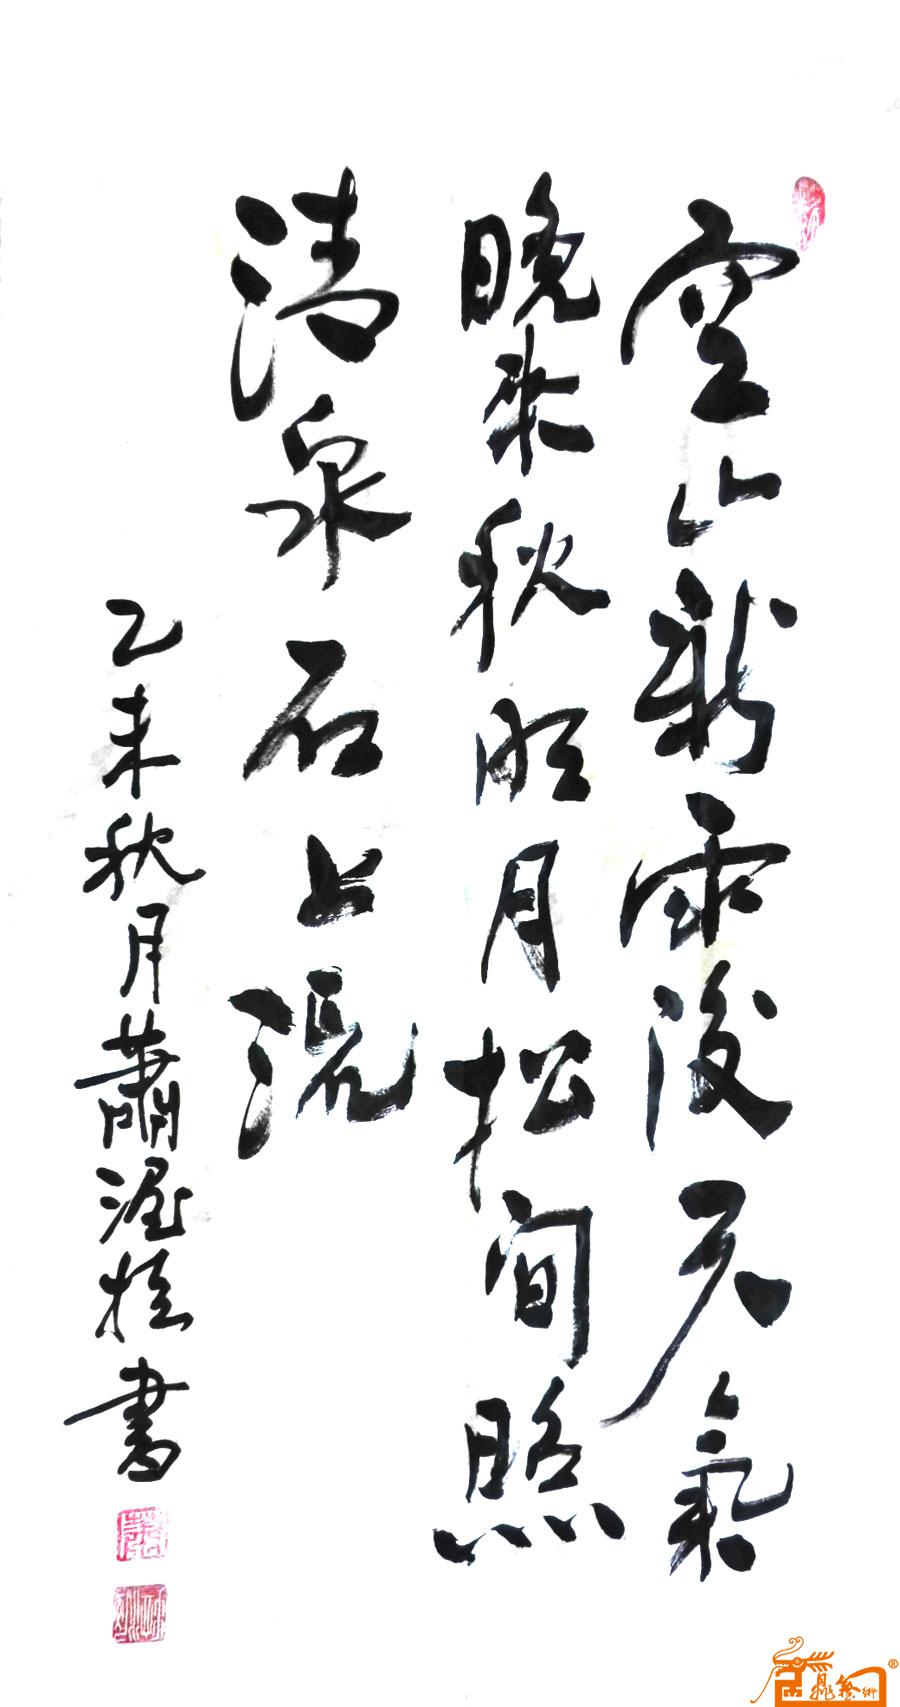 空山新雨後天氣
晚来秋明月松间照
清泉石上流
乙未秋月蕭渥書